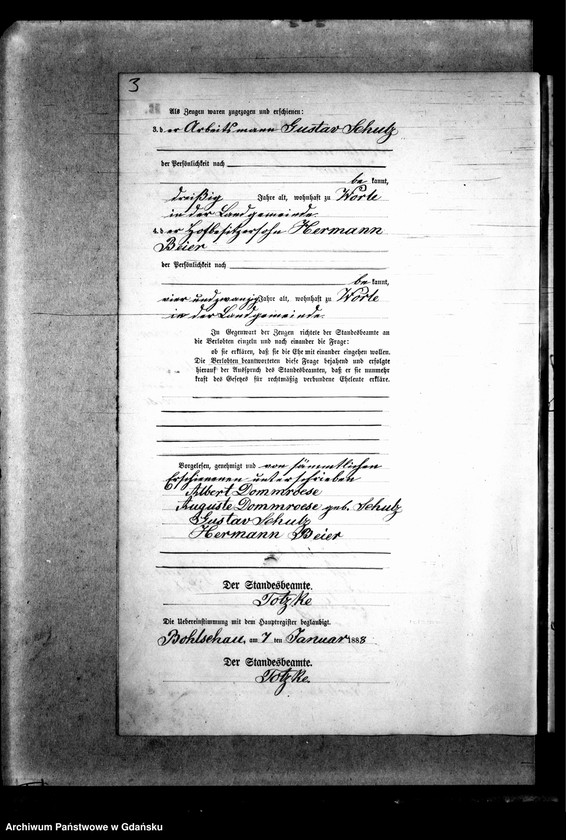 3
Als Zeugen waren zugezogen und erschienen:
3. d er Arbeitsmann Gustav Schulz
der Persönlichkeit nach
be kannt,
dreißig Jahre alt, wohnhaft zu Worle
in der Landgemeinde
4. d er Hofbesitzersohn Hermann
Beier
der Persönlichkeit nach
be kannt,
vier und zwanzig Jahre alt, wohnhaft zu Worle
in der Landgemeinde
In Gegenwart der Zeugen richtete der Standesbeamte an
die Verlobten einzeln und nach einander die Frage:
ob sie erklären, daß sie die Ehe mit einander eingehen wollen.
Die Verlobten beantworteten diese Frage bejahend und erfolgte
hierauf der Ausspruch des Standesbeamten, daß er sie nunmehr
kraft des Gesetzes für rechtmäßig verbundene Eheleute erkläre.
Vorgelesen, genehmigt und von sämmtlichen
Erschienenen unterschrieben
Albert Dommroese
Auguste Dommroese geb. Schulz
Gustav Schulz
Hermann Beier
Der Standesbeamte.
Totzke
Die Uebereinstimmung mit dem Hauptregister beglaubigt.
Bohlschau, am 7 ten Januar 1888
Der Standesbeamte.
Totzke.
Archiwum Państwowe w Gdańsku